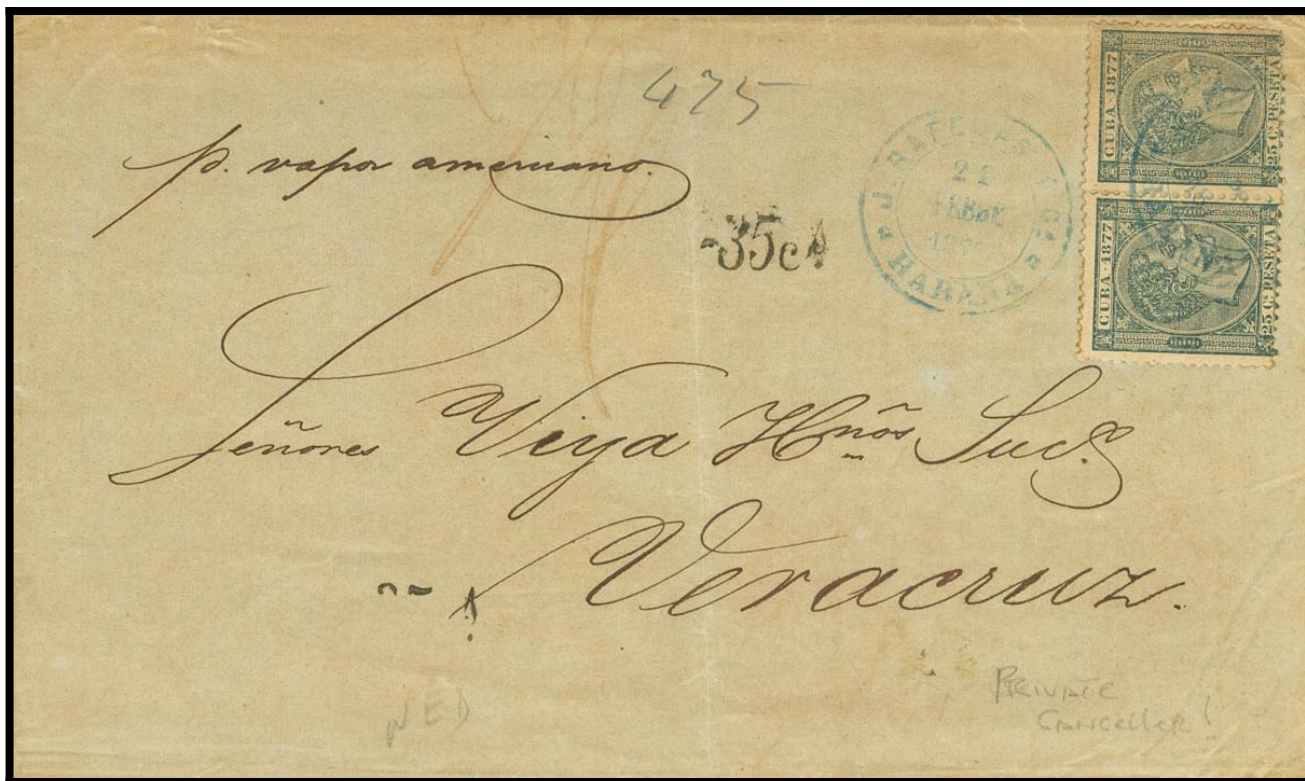 475
p. vapor americano.
35c
J. RAFECAS Y Cª
21
FEBRE
HABANA
CUBA · 1877
25 Cs PESETA
CUBA · 1877
25 Cs PESETA
Señores Viya Hnõs Sucs
Veracruz.
NED
PRIVATE
CANCELLER!